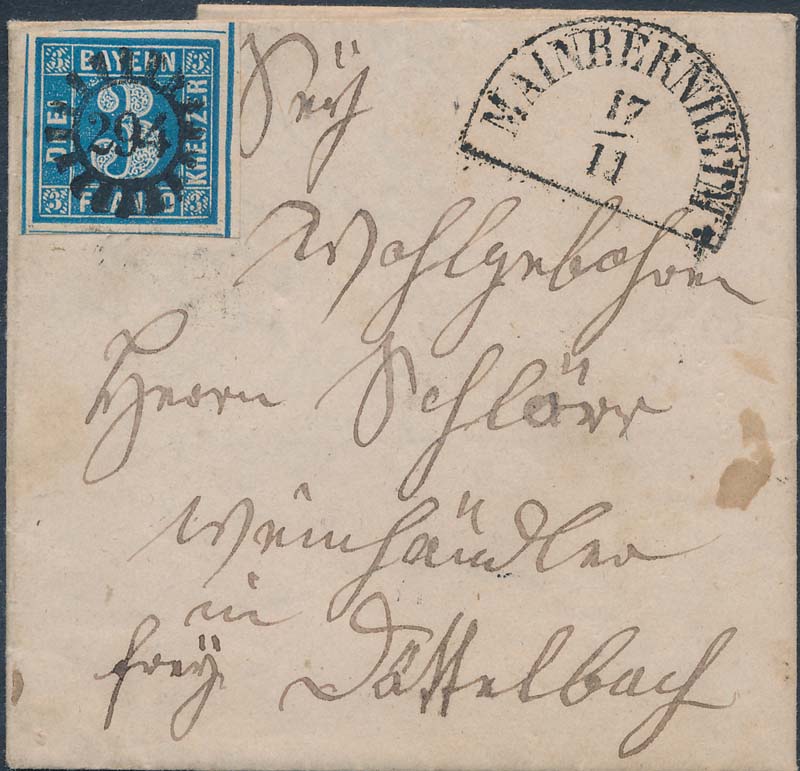 BAYERN
3 3
DREI
3
KREUZER
FRANCO
3 3
294
MAINBERNHEIM
17
11
Seÿ
Wohlgebohren
Herrn Schlörr
Weinhändler
in
freÿ Dättelbach